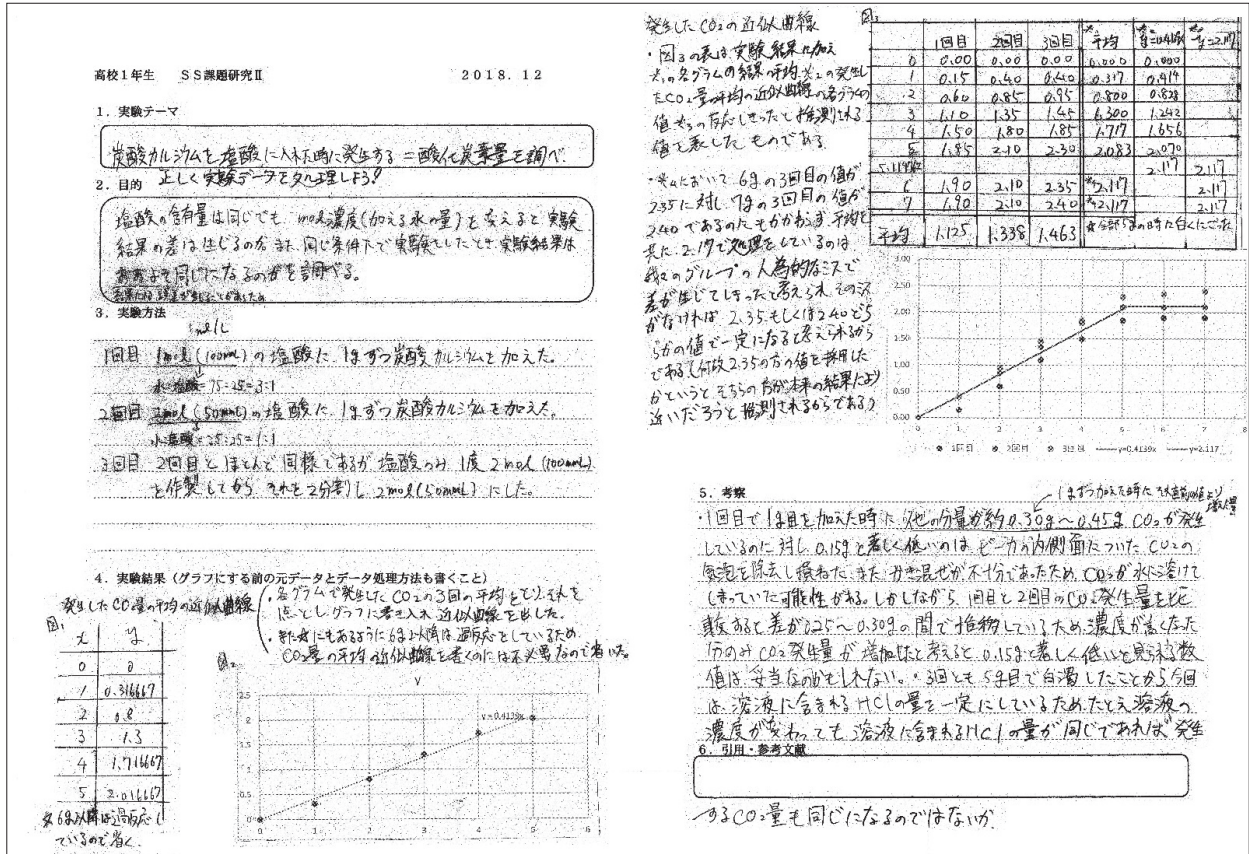 高校1年生 SS課題研究Ⅱ 2018.12
1. 実験テーマ
炭酸カルシウムを塩酸に入れた時に発生する二酸化炭素量を調べ、
正しく実験データを処理しよう!
2. 目的
塩酸の含有量は同じでも、mol濃度(加える水の量)を変えると実験
結果の差は生じるのか、また、同じ条件下で実験をしたとき、実験結果は
も同じになるのかを調べる。
3. 実験方法
mol/L
1回目 1mol(100mL)の塩酸に、1gずつ炭酸カルシウムを加えた。
水:塩酸=75:25=3:1
2回目 2mol(50mL)の塩酸に、1gずつ炭酸カルシウムを加えた。
水:塩酸=25:25=1:1
3回目 2回目とほとんど同様であるが塩酸のみ1度2mol(100mL)
を作製してから、それを2分割し、2mol(50mL)にした。
4. 実験結果(グラフにする前の元データとデータ処理方法も書くこと)
発生したCO2量の平均の近似曲線
・各グラムで発生したCO2の3回の平均をとり、それを
点とし、グラフに書き入れ、近似曲線を出した。
・また☆にもあるように6g以降は過反応をしているため
CO2量の平均の近似曲線を書くのには不必要なので省いた。
図1
x y
0 0
1 0.316667
2 0.8
3 1.3
4 1.716667
5 2.016667
☆6g以降は過反応し
ているので省く
図2
y
y=0.4139x
2.5
2
1.5
1
0.5
0
0 1 2 3 4 5 6
発生したCO2の近似曲線
・図3の表は、実験結果に加え
※1の各グラムの結果の平均、※2の発生し
たCO2量の平均の近似曲線の各グラムの
値、※3の反応しきったと推測される
値を表したものである。
・※4において、6gの3回目の値が
2.35に対し、7gの3回目の値が
2.40であるのにもかかわらず、平均を
共に2.117で処理をしているのは
我々のグループの人為的なミスで
差が生じてしまったと考えられ、そのミス
がなければ、2.35もしくは2.40どち
らかの値で一定になると考えられるから
である(何故2.35の方の値を採用した
かというと、そちらの方が本来の結果により
近いだろうと推測されるからである)
図3
1回目 2回目 3回目 ※1平均 ※2y=0.4139x ※3y=2.117
0 0.00 0.00 0.00 0.000 0.000
1 0.15 0.40 0.40 0.317 0.414
2 0.60 0.85 0.95 0.800 0.828
3 1.10 1.35 1.45 1.300 1.242
4 1.50 1.80 1.85 1.717 1.656
5 1.85 2.10 2.30 2.083 2.070
2.117 2.117
6 1.90 2.10 2.35 ※4 2.117 2.117
7 1.90 2.10 2.40 ※4 2.117 2.117
平均 1.125 1.338 1.463 ☆全部5gの時に白くにごった
3.00
2.50
2.00
1.50
1.00
0.50
0.00
0 1 2 3 4 5 6 7 8
1回目 2回目 3回目 y=0.4139x y=2.117
5. 考察
1gずつ加えた時にその直前の値より増えた量
・1回目で1g目を加えた時に、他の分量が約0.30g~0.45g CO2が発生
しているのに対し、0.15gと著しく低いのは、ビーカの内側面についたCO2の
気泡を除去し損ねた、また、かき混ぜが不十分であったため、CO2が水に溶けて
しまっていた可能性がある。しかしながら、1回目と2回目のCO2発生量を比
較すると差が0.25~0.30gの間で推移しているため、濃度が高くなった
分のみCO2発生量が増加したと考えると、0.15gと著しく低いと見られる数
値は、妥当なのかもしれない。・3回とも5g目で白濁したことから今回
は、溶液に含まれるHClの量を一定にしているため、たとえ溶液の
濃度が変わっても、溶液に含まれるHClの量が同じであれば、発生
6. 引用・参考文献
するCO2量も同じになるのではないか。